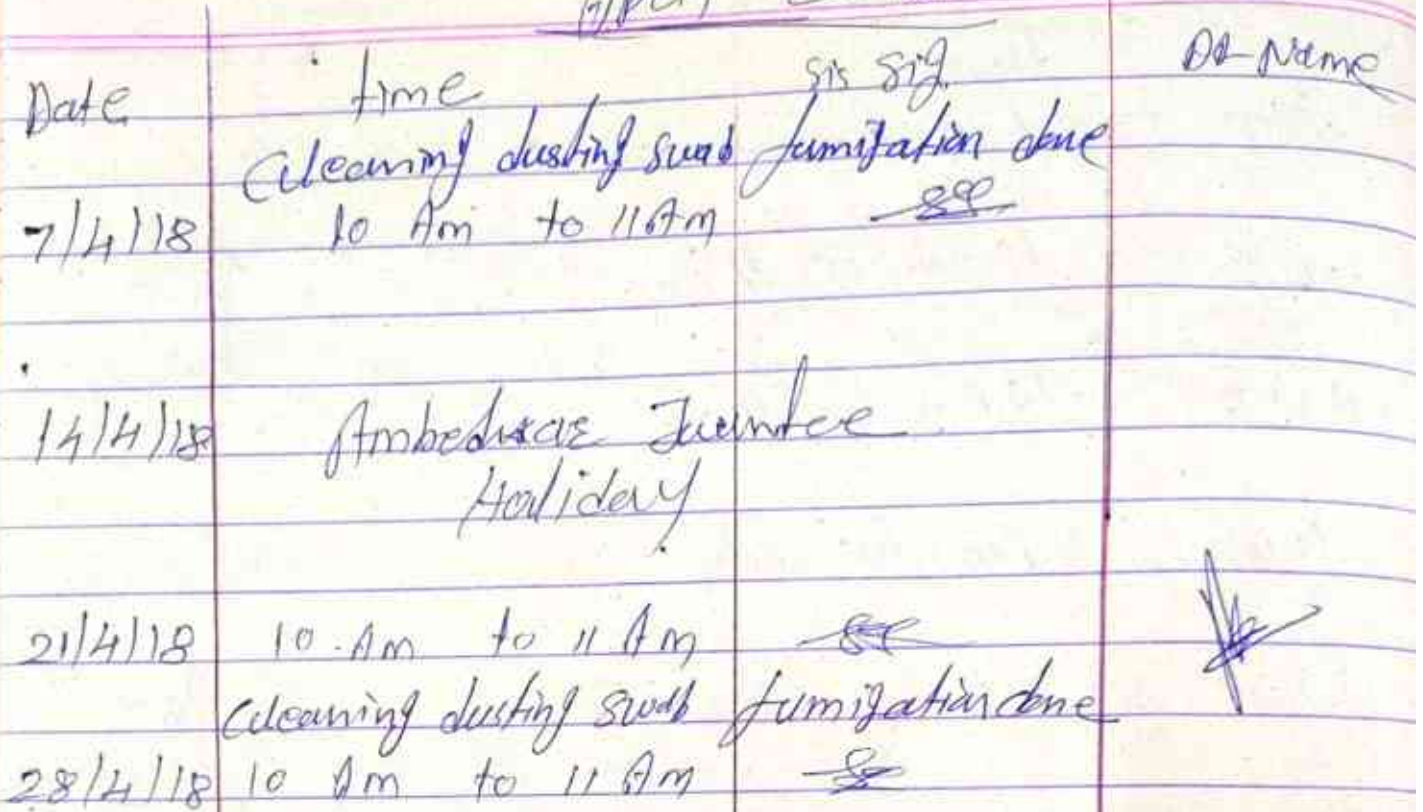 Date time sis sig. Dr Name
Cleaning dusting swab fumigation done
7/4/18 10 Am to 11 Am
14/4/18 Ambedkar Juentee
Holiday
21/4/18 10 Am to 11 Am
Cleaning dusting swab fumigation done
28/4/18 10 Am to 11 Am